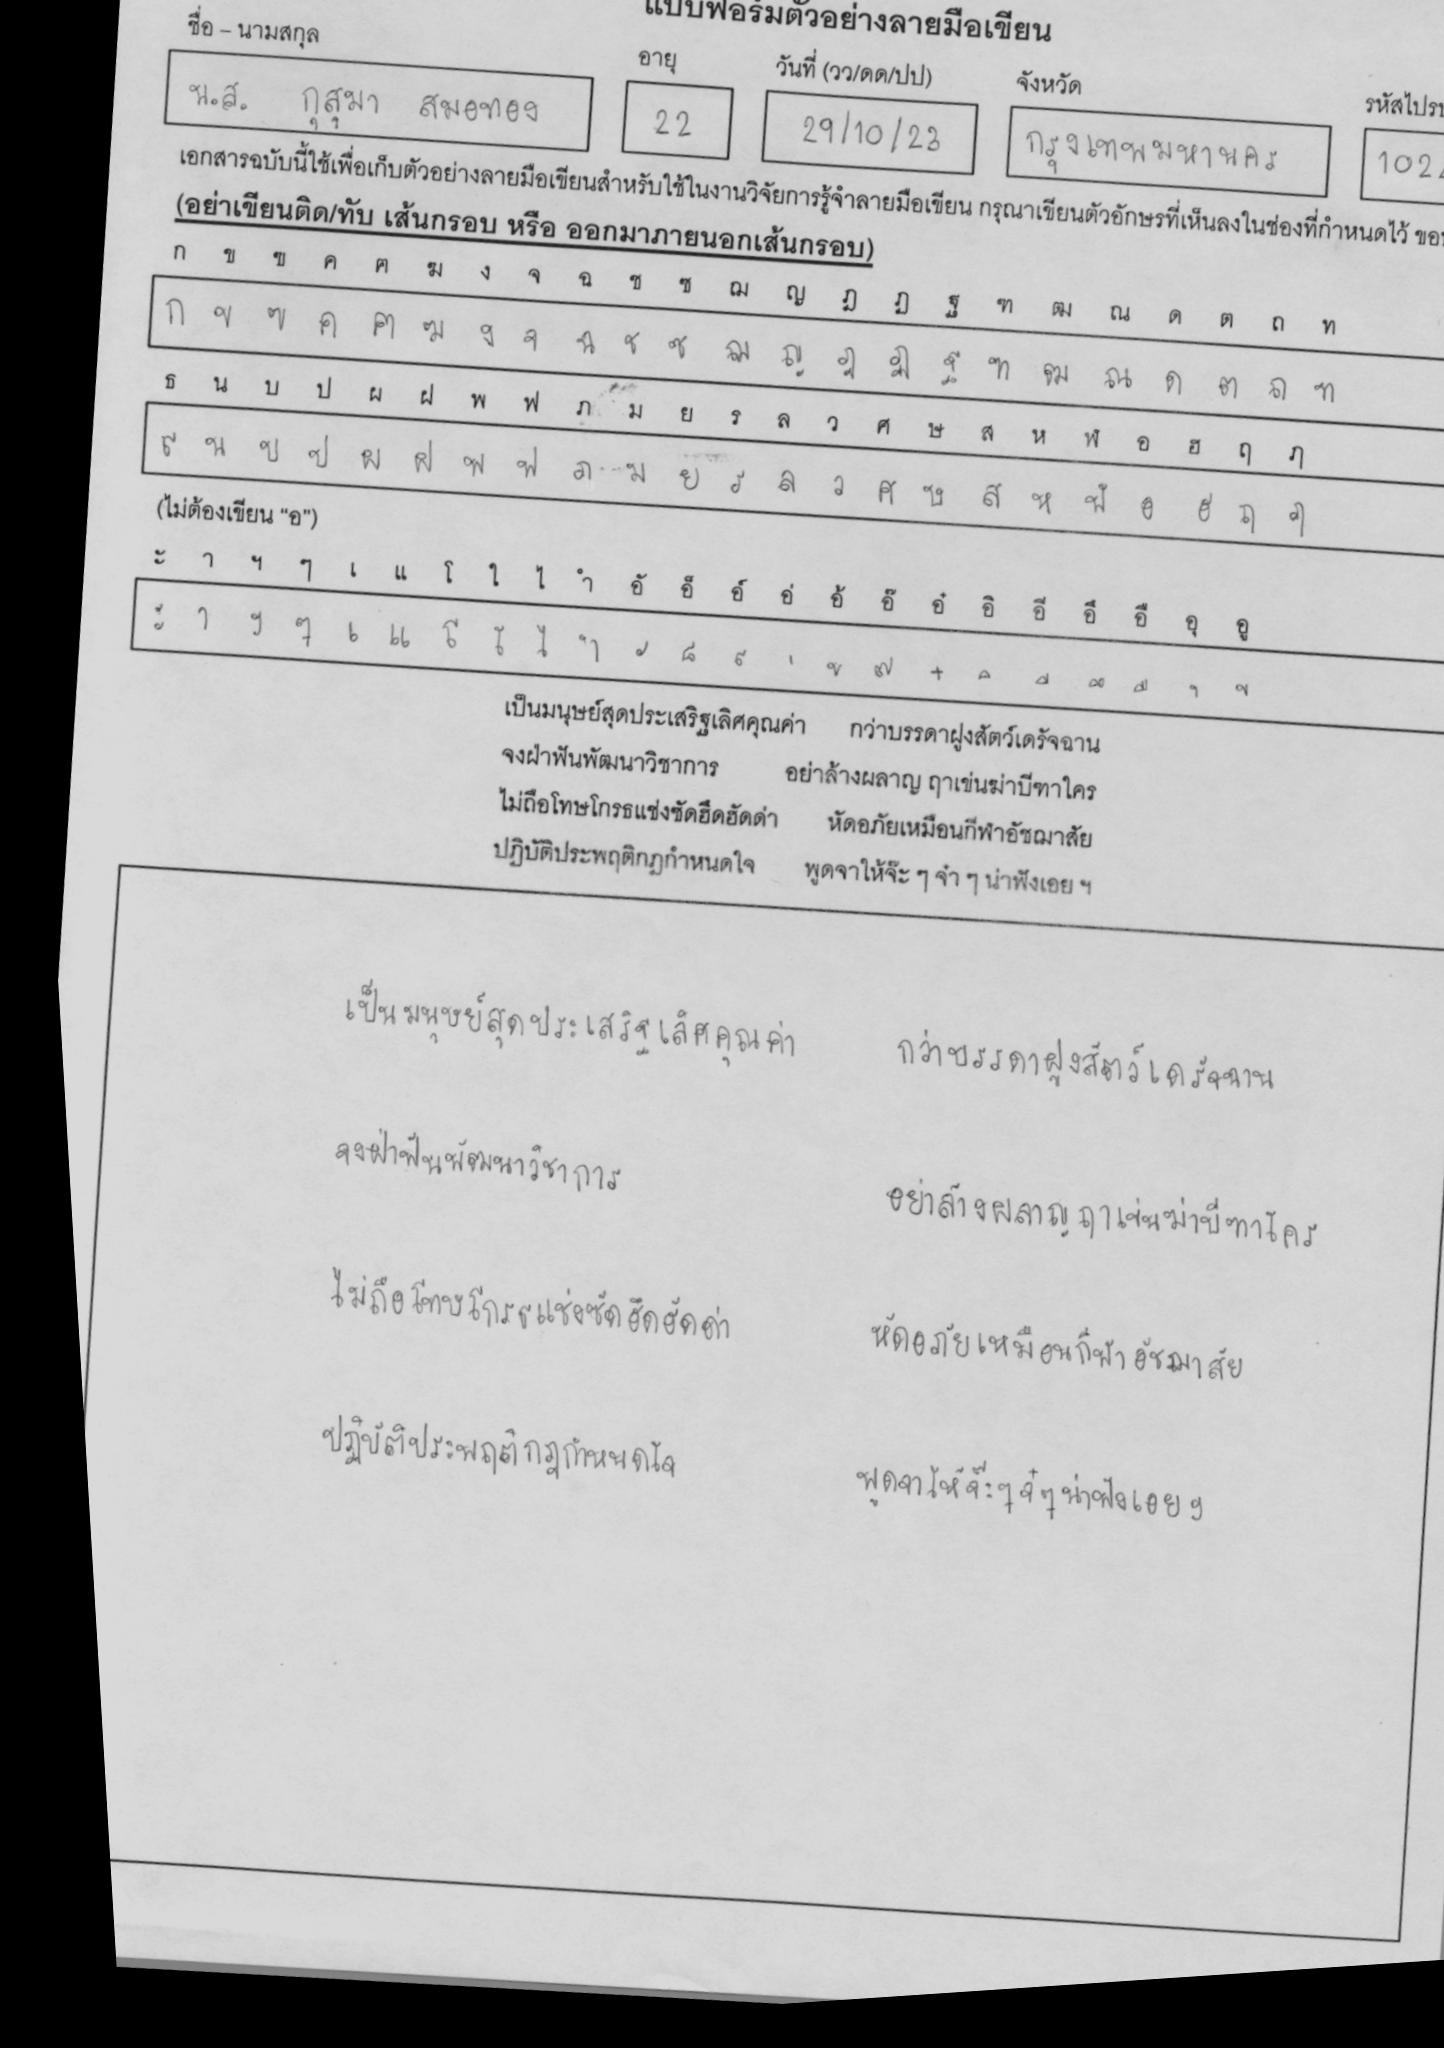 แบบฟอร์มตัวอย่างลายมือเขียน
ชื่อ – นามสกุล อายุ วันที่ (วว/ดด/ปป) จังหวัด
น.ส. กุสุมา สมอทอง 22 29/10/23 กรุงเทพมหานคร
เอกสารฉบับนี้ใช้เพื่อเก็บตัวอย่างลายมือเขียนสำหรับใช้ในงานวิจัยการรู้จำลายมือเขียน กรุณาเขียนตัวอักษรที่เห็นลงในช่องที่กำหนดไว้
(อย่าเขียนติด/ทับ เส้นกรอบ หรือ ออกมาภายนอกเส้นกรอบ)
ก ข ฃ ค ฅ ฆ ง จ ฉ ช ซ ฌ ญ ฎ ฏ ฐ ฑ ฒ ณ ด ต ถ ท
ก ข ฃ ค ฅ ฆ ง จ ฉ ช ซ ฌ ญ ฎ ฏ ฐ ฑ ฒ ณ ด ต ถ ท
ธ น บ ป ผ ฝ พ ฟ ภ ม ย ร ล ว ศ ษ ส ห ฬ อ ฮ ฤ ฦ
ธ น บ ป ผ ฝ พ ฟ ภ ม ย ร ล ว ศ ษ ส ห ฬ อ ฮ ฤ ฦ
(ไม่ต้องเขียน “อ”)
ะ า ฯ ๆ เ แ โ ใ ไ ำ อั อ็ อ์ อ่ อ้ อ๊ อ๋ อิ อี อึ อื อุ อู
ะ า ฯ ๆ เ แ โ ใ ไ ำ ั ็ ์ ่ ้ ๊ ๋ ิ ี ึ ื ุ ู
เป็นมนุษย์สุดประเสริฐเลิศคุณค่า กว่าบรรดาฝูงสัตว์เดรัจฉาน
จงฝ่าฟันพัฒนาวิชาการ อย่าล้างผลาญ ฤาเข่นฆ่าบีฑาใคร
ไม่ถือโทษโกรธแช่งซัดฮึดฮัดด่า หัดอภัยเหมือนกีฬาอัชฌาสัย
ปฏิบัติประพฤติกฎกำหนดใจ พูดจาให้จ๊ะ ๆ จ๋า ๆ น่าฟังเอย ฯ
เป็นมนุษย์สุดประเสริฐเลิศคุณค่า กว่าบรรดาฝูงสัตว์เดรัจฉาน
จงฝ่าฟันพัฒนาวิชาการ อย่าล้างผลาญ ฤาเข่นฆ่าบีฑาใคร
ไม่ถือโทษโกรธแช่งซัดฮึดฮัดด่า หัดอภัยเหมือนกีฬาอัชฌาสัย
ปฏิบัติประพฤติกฎกำหนดใจ พูดจาให้จ๊ะๆจ๋ๆน่าฟังเอยฯ